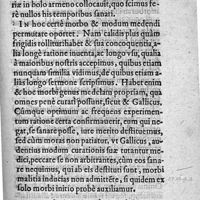 riæ in bolo armeno collocauit, quo scimus fe
rè nullos his temporibus sanari.
In hoc certè morbo & modum medendi
permutare oportet. Nam calidis plus quàm
frigidis tollitur: habet & sua concoquentia, a
liis longè ratione inuenta, ac longo vsu, quàm
à maioribus nostris accepimus, quibus etiam
nunquam similia vidimus, de quibus etiam a
liis longo sermone scripsimus. Habet enim
& hoc morbi genus medelam propriam, qua
omnes penè curari possunt, sicut & Gallicus.
Cùmque optimum ac frequens experimen-
tum ratione certa confirmauerit, eum qui ne
gat, se sanare posse, iure merito destituemus,
sed cùm moras non patiatur, vt Gallicus, au
dentius modum curationis suæ tutantur me
dici, peccare se non arbitrantes, cùm eos sana
re nequimus, qui ab eis destituti sunt, morbi
malitia hodacias non admittere, si quidem ex
solo morbi initio probè auxiliamur.